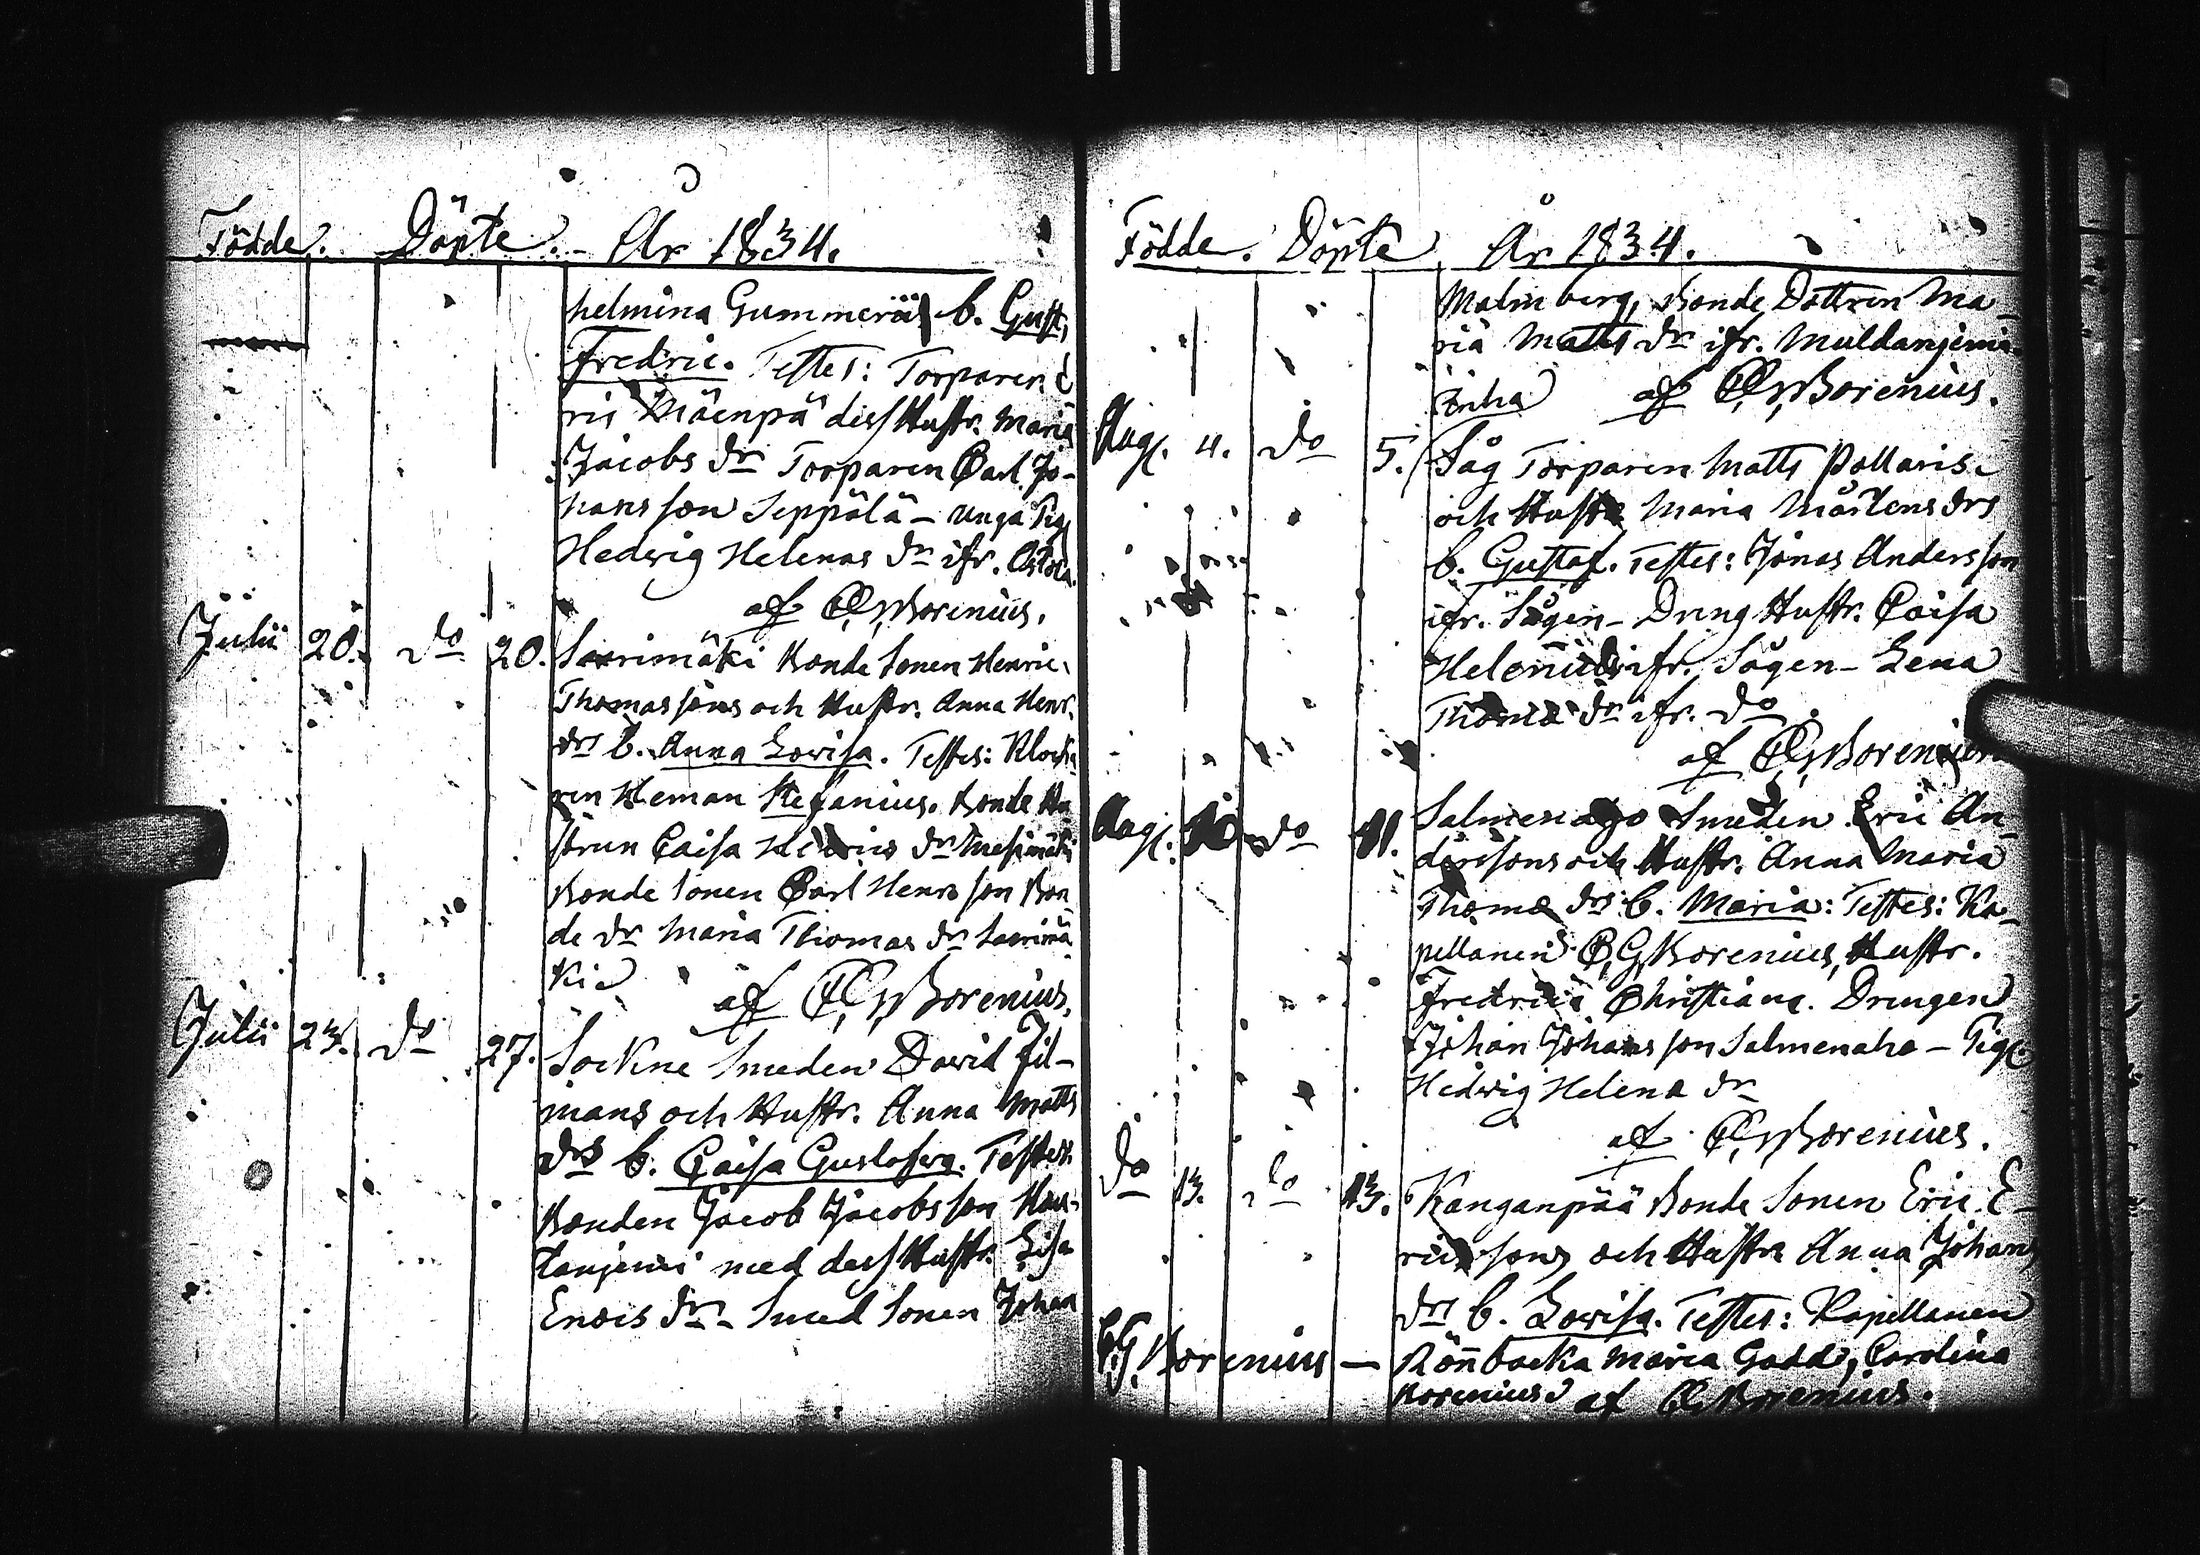 Födde. Döpte. År 1834.
helmina Gummerii b. Gust.
Fredric. Testes: Torparen E
ric Mäenpä dess Hustr. Maria
Jacobs dr Torparen Carl Jo-
hansson Seppälä - unga Pig
Hedvig Helenas dr ifr.
af C. G. Borenius.
Julii 20. do 20. Saarimäki Bonde Sonen Henric
Thomassons och Hustr. Anna Henr.
drs b. Anna Lovisa. Testes: Klocka
ren Heman Stefanius. Bonde Hu
strun Caisa dr Mesimäki
Bonde Sonen Carl Henrs son Bon
de dr Maria Thomas dr Saarimä
ki af C. G. Borenius.
Julii 23. do 27. Sockne Smeden David Fil-
mans och Hustr. Anna Matts
drs b. Caisa Gustafva. Testes:
Bonden Jacob Jacobsson
tanjemi med dess Hustr. Lisa
Ericis dr - Smed Sonen Johan
Födde. Döpte År 1834.
Malmberg, Bonde Dottren Ma-
ria Matts dr ifr.
Inha af C. G. Borenius.
Aug. 4. do 5. Såg Torparen Matts Pollaris.
och Hustr Maria Mårtens drs
b. Gustaf. Testes: Jonas Andersson
ifr. Sågen - Dreng Hustr. Caisa
ifr. Sågen - Lena
Thomæ dr ifr. do
af C. G. Borenius
Aug. 10 do 11. Smeden Eric An-
derssons och Hustr. Anna Maria
Thomæ drs b. Maria: Testes: Ka-
pellanen C. G. Borenius, Hustr.
Fredrica Christiana. Drengen
Johan Johansson Salmenaho - Pig.
Hedvig Helena dr
af C. G. Borenius.
do 13. do 13. Kanganpää Bonde Sonen Eric E-
ricssons och Hustr Anna Johans
drs b. Lovisa. Testes: Kapellanen
C. G. Borenius - Rönbacka Maria Gadd, Carolina
Borenius af C. G. Borenius.